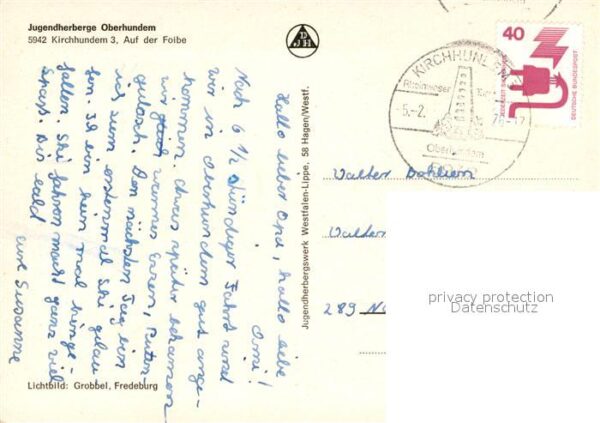 Jugendherberge Oberhundem
5942 Kirchhundem 3, Auf der Foibe
Hallo lieber Opa, hallo liebe
Omi!
Nach 6 1/2 stündiger Fahrt sind
wir in Oberhundem gut ange-
kommen. Etwas später bekamen
wir gleich warmes Essen, Puten-
gulasch. Den nächsten Tag bin
ich zum erstenmal Ski gelau-
fen. Ich bin kein mal hinge-
fallen. Ski fahren macht ganz viel
Spass. Bis bald
eure Susanne
Lichtbild: Grobbel, Fredeburg
Jugendherbergswerk Westfalen-Lippe, 58 Hagen/Westf.
DJH
KIRCHHUNDEM
5.-2.
Oberhundem
40
JEDERZEIT SICHERHEIT
DEUTSCHE BUNDESPOST
Walter
Walter
289 No
privacy protection
Datenschutz